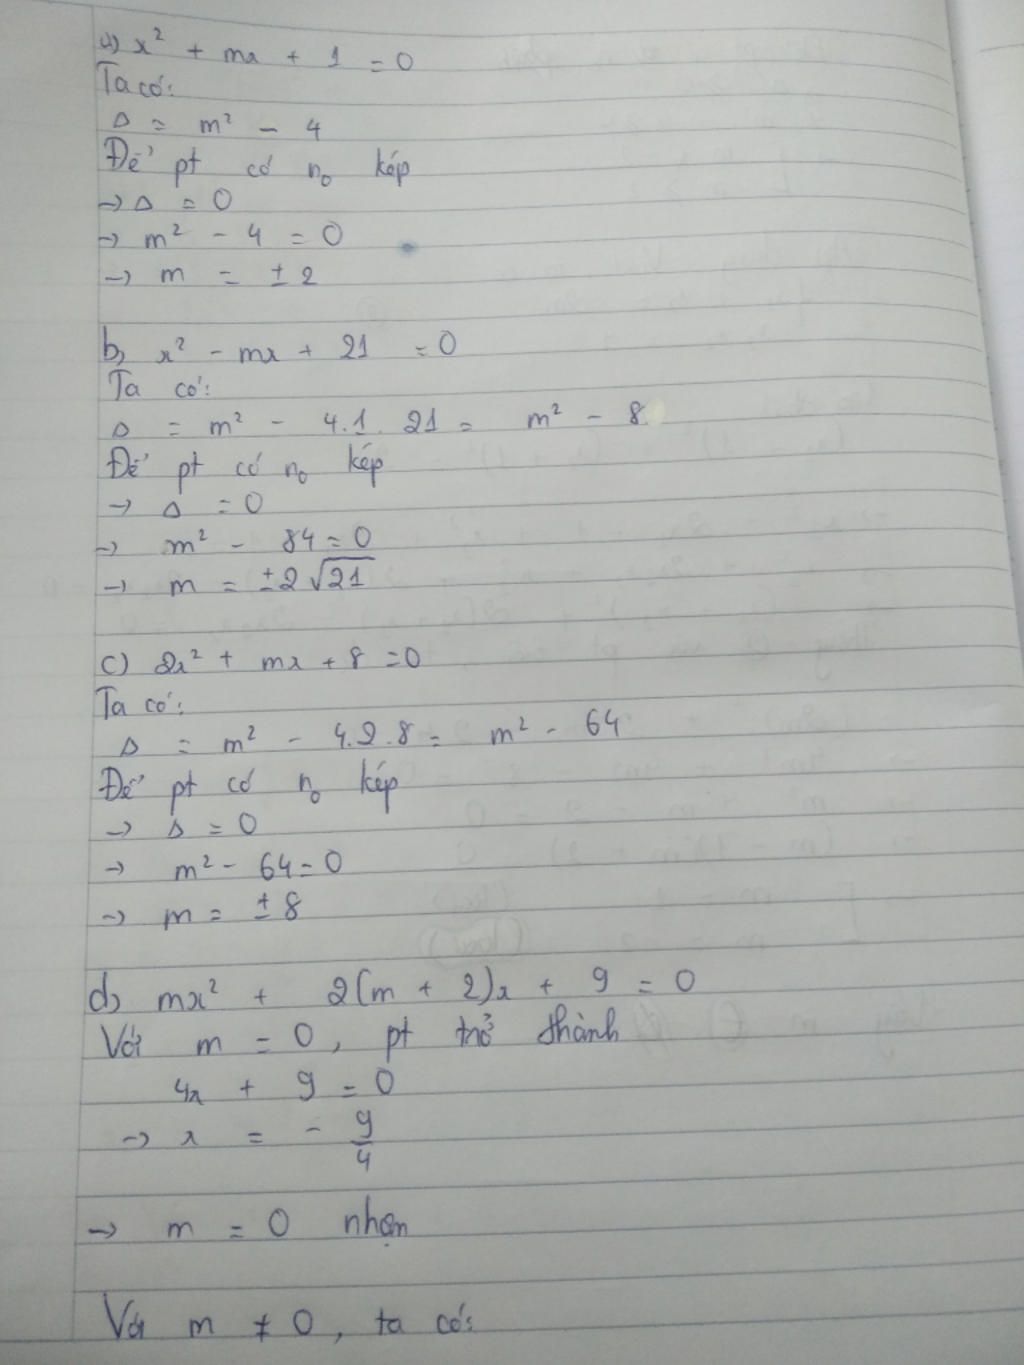 a) x² + mx + 1 = 0
Ta có:
Δ = m² - 4
Để pt có n₀ kép
→ Δ = 0
→ m² - 4 = 0
→ m = ± 2
b) x² - mx + 21 = 0
Ta có:
Δ = m² - 4.1.21 = m² - 8
Để pt có n₀ kép
→ Δ = 0
→ m² - 84 = 0
→ m = ±2√21
c) 2x² + mx + 8 = 0
Ta có:
Δ = m² - 4.2.8 = m² - 64
Để pt có n₀ kép
→ Δ = 0
→ m² - 64 = 0
→ m = ± 8
d) mx² + 2(m + 2)x + 9 = 0
Với m = 0, pt trở thành
4x + 9 = 0
→ x = - 9/4
→ m = 0 nhận
Với m ≠ 0, ta có: